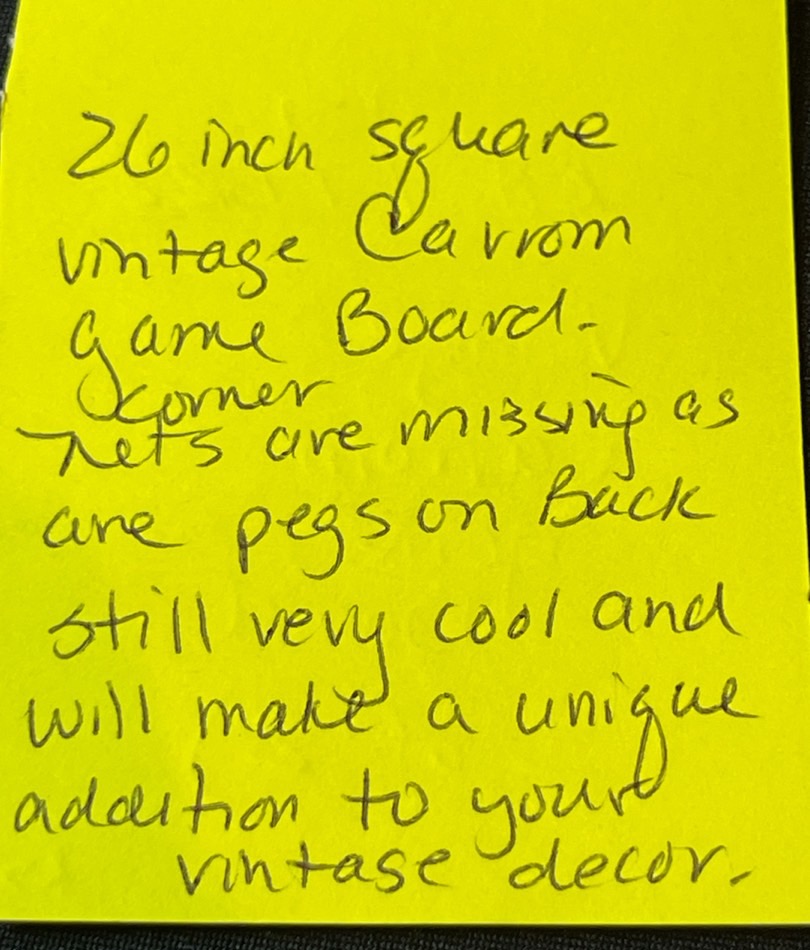 26 inch square
vintage Carrom
game Board.
corner
nets are missing as
are pegs on Back
still very cool and
will make a unique
addition to your
vintage decor.